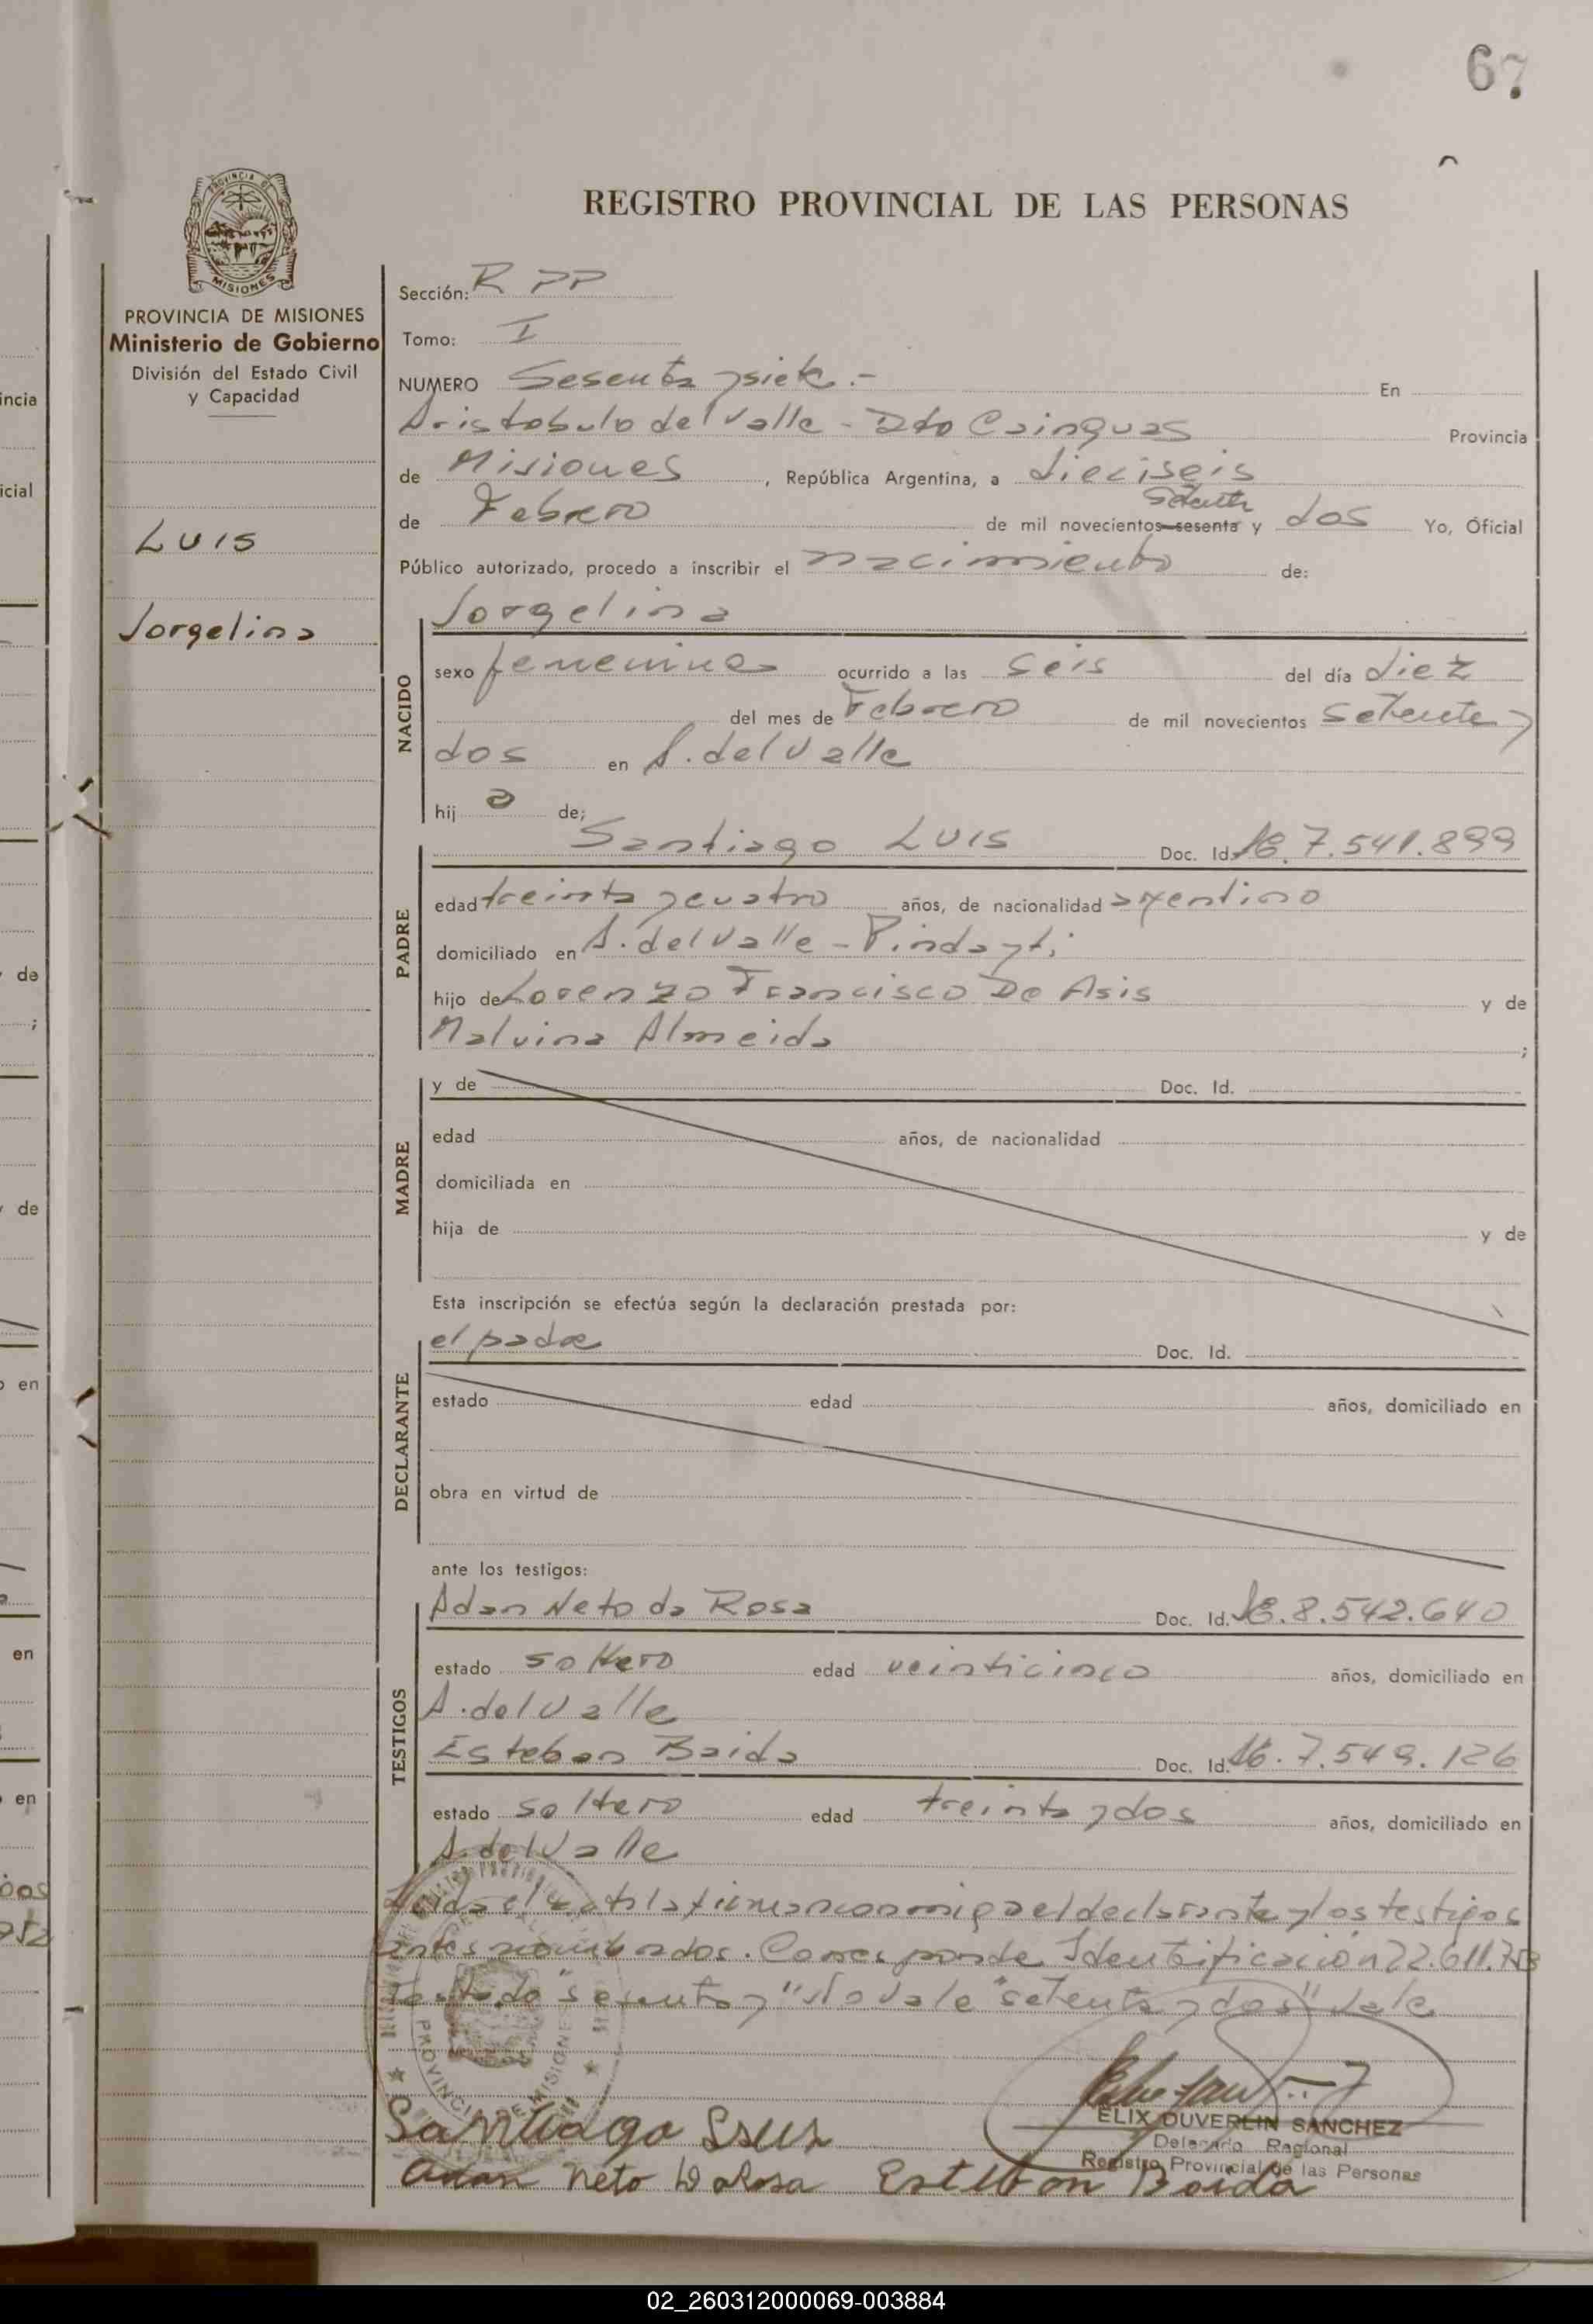 67
REGISTRO PROVINCIAL DE LAS PERSONAS
PROVINCIA DE
MISIONES
PROVINCIA DE MISIONES
Ministerio de Gobierno
División del Estado Civil
y Capacidad
LUIS
Jorgelina
Sección: R PP
Tomo: I
NUMERO Sesenta y siete.- En
Aristobulo del Valle - Dto Cainguas Provincia
de Misiones, República Argentina, a dieciseis
setenta
de Febrero de mil novecientos sesenta y dos Yo, Oficial
Público autorizado, procedo a inscribir el nacimiento de:
Jorgelina
NACIDO
sexo femenino ocurrido a las seis del día diez
del mes de Febrero de mil novecientos setenta y
dos en A. del Valle
hij a de;
Santiago LUIS Doc. Id. 7.541.899
PADRE
edad treinta y cuatro años, de nacionalidad argentino
domiciliado en A. del Valle - Pindayti
hijo de Lorenzo Francisco De Asis y de
Malvina Almeida ;
MADRE
y de Doc. Id.
edad años, de nacionalidad
domiciliada en
hija de y de
Esta inscripción se efectúa según la declaración prestada por:
el padre Doc. Id.
DECLARANTE
estado edad años, domiciliado en
obra en virtud de
ante los testigos:
TESTIGOS
Adan Neto da Rosa Doc. Id. 8.542.640
estado soltero edad veinticinco años, domiciliado en
A. del Valle
Esteban Baida Doc. Id. 7.549.126
estado soltero edad treinta y dos años, domiciliado en
A. del Valle
Leida el acta la firman conmigo el declarante y los testigos
antes nombrados. Corresponde Identificación 22.611.753
Testado "sesenta y" No vale "setenta y dos" vale
PROVINCIA DE MISIONES
ELIX DUVERLIN SANCHEZ
Delegado Regional
Registro Provincial de las Personas
Santiago
Adan Neto Da Rosa Esteban Baida
incia
icial
de
;
de
en
en
en
02_260312000069-003884